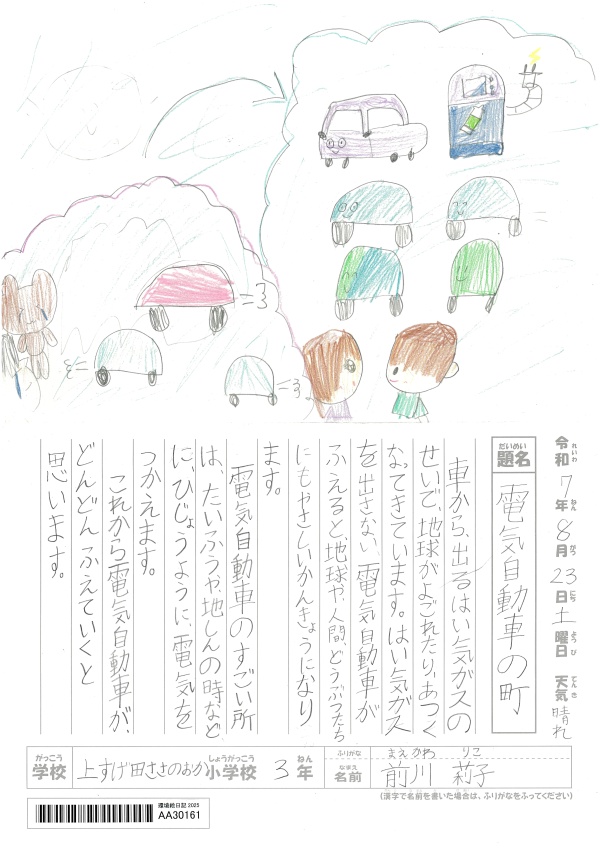 令和7年8月23日土曜日 天気晴れ
れいわ ねん がつ にち ようび てんき
だいめい
題名 電気自動車の町
車から、出るはい気ガスの
せいで、地球がよごれたり、あつく
なってきています。はい気ガス
を出さない、電気自動車が
ふえると、地球や、人間、どうぶつたち
にもやさしいかんきょうになり
ます。
電気自動車のすごい所
は、たいふうや地しんの時など
に、ひじょうように、電気を
つかえます。
これから電気自動車が、
どんどんふえていくと
思います。
がっこう しょうがっこう ねん
学校 上すげ田ささのおか小学校 3年
ふりがな まえかわ りこ
なまえ
名前 前川 莉子
(漢字で名前を書いた場合は、ふりがなをふってください)
環境絵日記 2025
AA30161